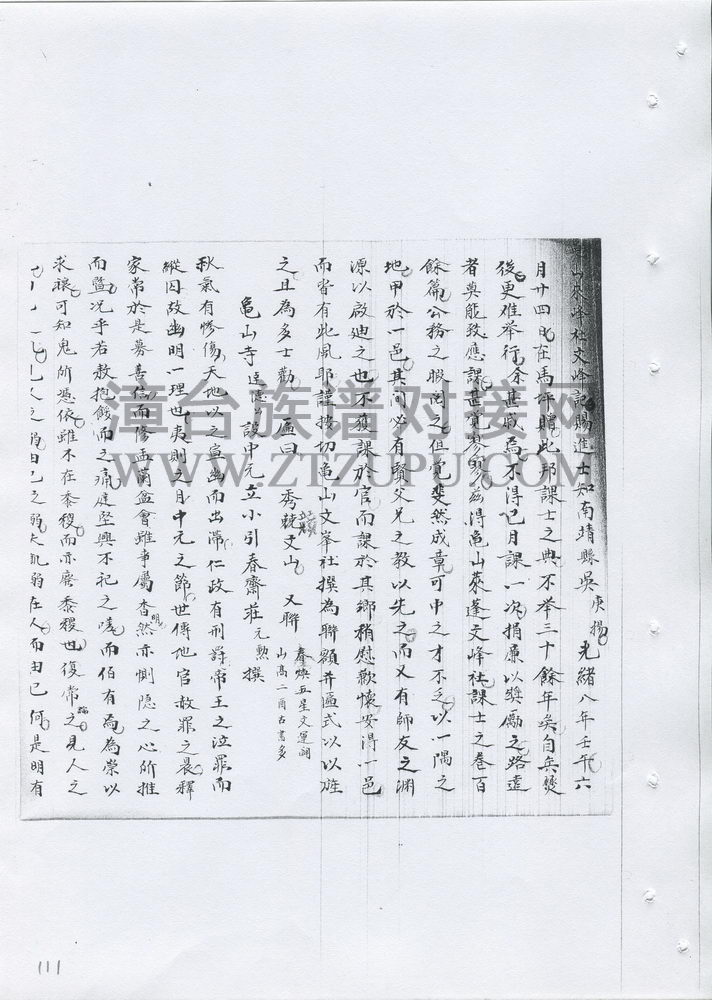 山來峰社文峰記賜進士知南靖縣吳庚揚光緒八年壬午六
月廿四日在馬坪贈此邦課士之典不举三十餘年矣自兵燹
後更难举行余甚戚焉不得已月課一次捐廉以奬勵之路遠
者奐能致應課甚覚寥寥兹得亀山萊蓬文峰社課士之卷百
餘篇公務之暇阅之但覚斐然成章可中之才不乏以一隅之
地甲於一邑其间必有賢父兄之教以先之而又有師友之渊
源以啟廸之也不獲課於官而課於其鄉稍慰歡懷安得一邑
而皆有此風耶謹按切亀山文峯社撰為聯額并匾式以以旌
之且為多士勸 匾曰 秀競文山 又聯 奎燦五星文運開 山高二酉古書多
亀山寺 設中元立小引春齋莊元勲撰
秋氣有惨傷天地以之宣幽而出滞仁政有刑罸帝王之泣罪而
縱囚故幽明一理也夷則之月中元之節世傳地官赦罪之晨釋
家常於是募善信而修盂蘭盆會雖事屬杳然明亦惻隐之心所推
而暨况乎若敖抱餒而之痛庭堅興不祀之嗟而伯有為為崇以
求祿可知鬼所憑依雖不在黍稷而亦庶黍稷也復常之見人之
人之溺由己之弱大飢弱在人而由已何是明有
漳台族谱对接网
WWW.ZTZUPU.COM
111